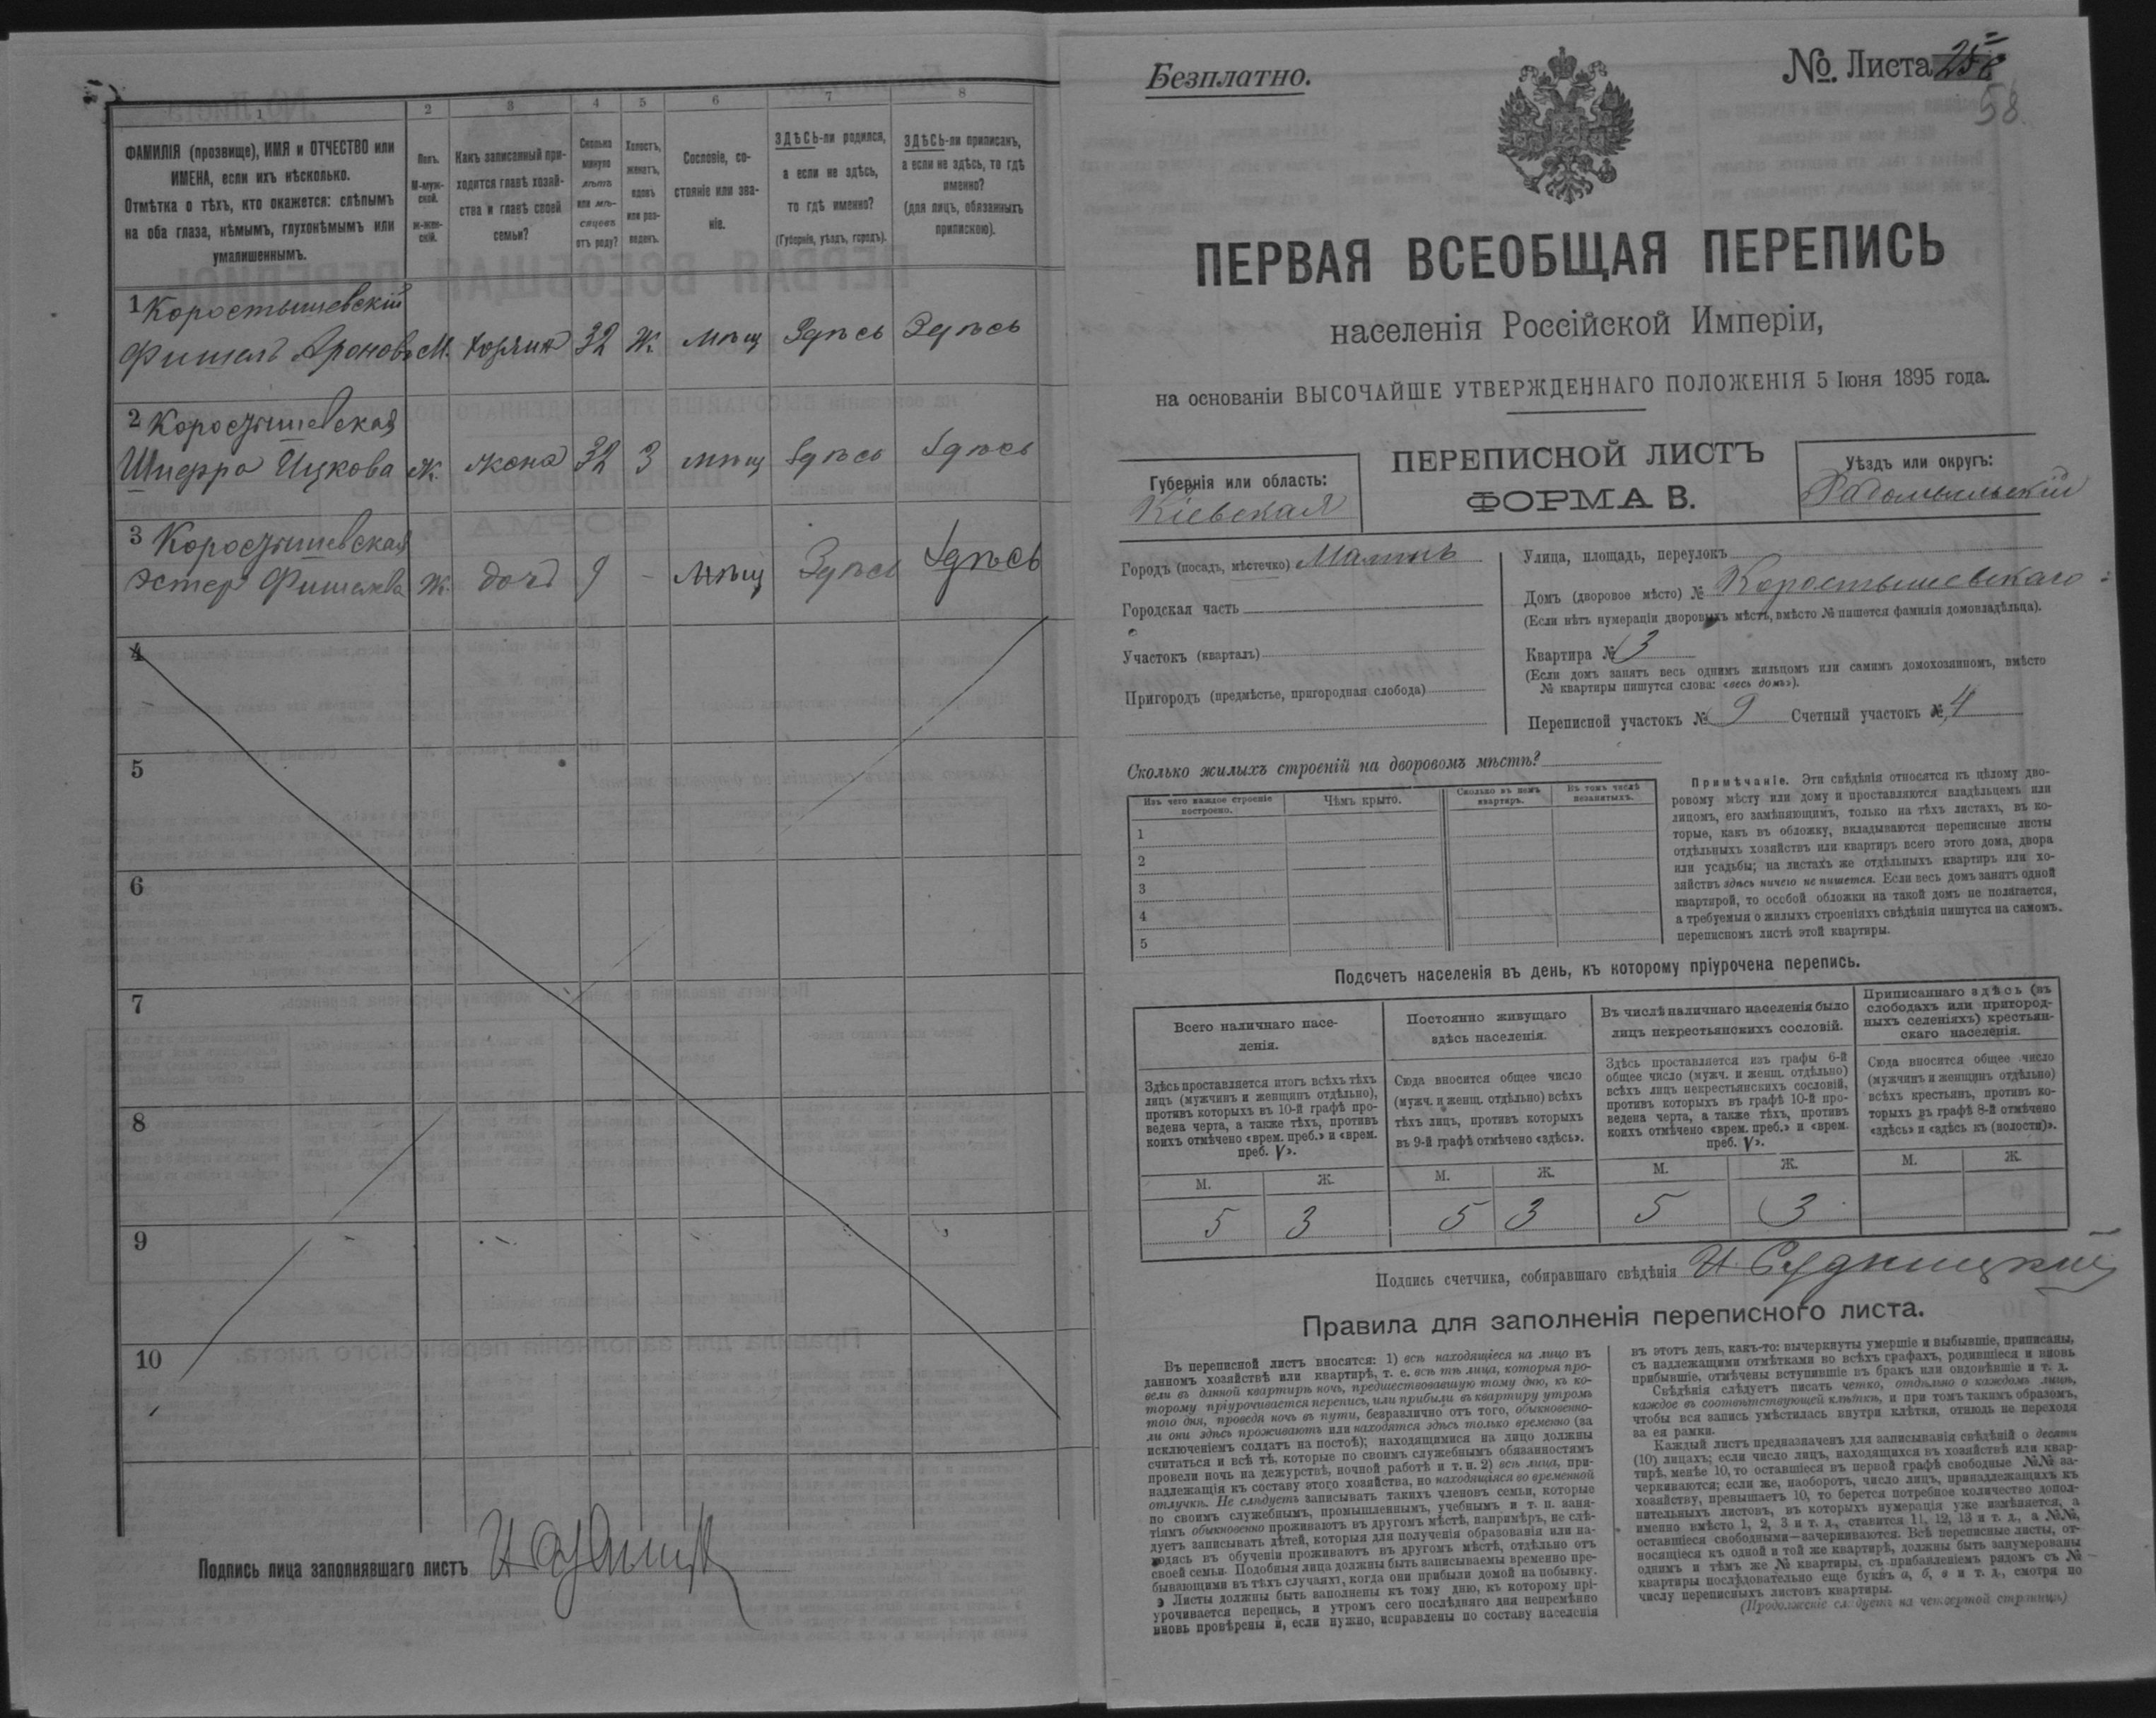 1 2 3 4 5 6 7 8
ФАМИЛІЯ (прозвище), ИМЯ и ОТЧЕСТВО или
ИМЕНА, если ихъ нѣсколько.
Отмѣтка о тѣхъ, кто окажется: слѣпымъ
на оба глаза, нѣмымъ, глухонѣмымъ или
умалишеннымъ.
Полъ.
М-муж-
ской.
ж-жен-
скій.
Какъ записанный при-
ходится главѣ хозяй-
ства и главѣ своей
семьи?
Сколько
минуло
лѣтъ
или мѣ-
сяцевъ
отъ роду?
Холостъ,
женатъ,
вдовъ
или раз-
веденъ.
Сословіе, со-
стояніе или зва-
ніе.
ЗДѢСЬ-ли родился,
а если не здѣсь,
то гдѣ именно?
(Губернія, уѣздъ, городъ).
ЗДѢСЬ-ли приписанъ,
а если не здѣсь, то гдѣ
именно?
(для лицъ, обязанныхъ
припискою).
1 Коростышевскій
Фишель Ароновъ М. хозяинъ 32 Ж. мѣщ Здѣсь Здѣсь
2 Коростышевская
Шифра Ицкова ж. жена 32 З мѣщ Здѣсь Здѣсь
3 Коростышевская
Эстер Фишелева ж. дочь 9 - мѣщ Здѣсь Здѣсь
4
5
6
7
8
9
10
Подпись лица заполнявшаго листъ
Безплатно.
№. Листа 25
58.
ПЕРВАЯ ВСЕОБЩАЯ ПЕРЕПИСЬ
населенія Россійской Имперіи,
на основаніи ВЫСОЧАЙШЕ УТВЕРЖДЕННАГО ПОЛОЖЕНІЯ 5 Іюня 1895 года.
ПЕРЕПИСНОЙ ЛИСТЪ
ФОРМА В.
Губернія или область:
Кіевская
Уѣздъ или округъ:
Радомысльскій
Городъ (посадъ, мѣстечко) Малинъ
Городская часть
Участокъ (кварталъ)
Пригородъ (предмѣстье, пригородная слобода)
Улица, площадь, переулокъ
Домъ (дворовое мѣсто) № Коростышевскаго
(Если нѣтъ нумераціи дворовыхъ мѣстъ, вмѣсто № пишется фамилія домовладѣльца).
Квартира № 3
(Если домъ занятъ весь однимъ жильцомъ или самимъ домохозяиномъ, вмѣсто
№ квартиры пишутся слова: «весь домъ»).
Переписной участокъ № 9 Счетный участокъ № 4
Сколько жилыхъ строеній на дворовомъ мѣстѣ?
Изъ чего каждое строеніе
построено.
Чѣмъ крыто.
Сколько въ немъ
квартиръ.
Въ томъ числѣ
незанятыхъ.
1
2
3
4
5
Примѣчаніе. Эти свѣдѣнія относятся къ цѣлому дво-
ровому мѣсту или дому и проставляются владѣльцемъ или
лицомъ, его замѣняющимъ, только на тѣхъ листахъ, въ ко-
торые, какъ въ обложку, вкладываются переписные листы
отдѣльныхъ хозяйствъ или квартиръ всего этого дома, двора
или усадьбы; на листахъ же отдѣльныхъ квартиръ или хо-
зяйствъ здѣсь ничего не пишется. Если весь домъ занятъ одной
квартирой, то особой обложки на такой домъ не полагается,
а требуемыя о жилыхъ строеніяхъ свѣдѣнія пишутся на самомъ
переписномъ листѣ этой квартиры.
Подсчетъ населенія въ день, къ которому пріурочена перепись.
Всего наличнаго насе-
ленія.
Здѣсь проставляется итогъ всѣхъ тѣхъ
лицъ (мужчинъ и женщинъ отдѣльно),
противъ которыхъ въ 10-й графѣ про-
ведена черта, а также тѣхъ, противъ
коихъ отмѣчено «врем. преб.» и «врем.
преб. V».
Постоянно живущаго
здѣсь населенія.
Сюда вносится общее число
(мужч. и женщ. отдѣльно) всѣхъ
тѣхъ лицъ, противъ которыхъ
въ 9-й графѣ отмѣчено «здѣсь».
Въ числѣ наличнаго населенія было
лицъ некрестьянскихъ сословій.
Здѣсь проставляется изъ графы 6-й
общее число (мужч. и женщ. отдѣльно)
всѣхъ лицъ некрестьянскихъ сословій,
противъ которыхъ въ графѣ 10-й про-
ведена черта, а также тѣхъ, противъ
коихъ отмѣчено «врем. преб.» и «врем.
преб. V».
Приписаннаго здѣсь (въ
слободахъ или пригород-
ныхъ селеніяхъ) крестьян-
скаго населенія.
Сюда вносится общее число
(мужчинъ и женщинъ отдѣльно)
всѣхъ крестьянъ, противъ ко-
торыхъ въ графѣ 8-й отмѣчено
«здѣсь» и «здѣсь къ (волости)».
М. Ж. М. Ж. М. Ж. М. Ж.
5 3 5 3 5 3
Подпись счетчика, собиравшаго свѣдѣнія И. Судницкій
Правила для заполненія переписного листа.
Въ переписной листъ вносятся: 1) всѣ находящіеся на лицо въ
данномъ хозяйствѣ или квартирѣ, т. е. всѣ тѣ лица, которыя про-
вели въ данной квартирѣ ночь, предшествовавшую тому дню, къ ко-
торому пріурочивается перепись, или прибыли въ квартиру утромъ
того дня, проведя ночь въ пути, безразлично отъ того, обыкновенно-
ли они здѣсь проживаютъ или находятся здѣсь только временно (за
исключеніемъ солдатъ на постоѣ); находящимися на лицо должны
считаться и всѣ тѣ, которые по своимъ служебнымъ обязанностямъ
провели ночь на дежурствѣ, ночной работѣ и т. п. 2) всѣ лица, при-
надлежащія къ составу этого хозяйства, но находящіяся во временной
отлучкѣ. Не слѣдуетъ записывать такихъ членовъ семьи, которые
по своимъ служебнымъ, промышленнымъ, учебнымъ и т. п. заня-
тіямъ обыкновенно проживаютъ въ другомъ мѣстѣ, напримѣръ, не слѣ-
дуетъ записывать дѣтей, которыя для полученія образованія или на-
ходясь въ обученіи проживаютъ въ другомъ мѣстѣ, отдѣльно отъ
своей семьи. Подобныя лица должны быть записываемы временно пре-
бывающими въ тѣхъ случаяхъ, когда они прибыли домой на побывку.
Листы должны быть заполнены къ тому дню, къ которому прі-
урочивается перепись, и утромъ сего послѣдняго дня непремѣнно
вновь провѣрены и, если нужно, исправлены по составу населенія
въ этотъ день, какъ-то: вычеркнуты умершіе и выбывшіе, приписаны,
съ надлежащими отмѣтками во всѣхъ графахъ, родившіеся и вновь
прибывшіе, отмѣчены вступившіе въ бракъ или овдовѣвшіе и т. д.
Свѣдѣнія слѣдуетъ писать четко, отдѣльно о каждомъ лицѣ,
каждое въ соотвѣтствующей клѣткѣ, и при томъ такимъ образомъ,
чтобы вся запись умѣстилась внутри клѣтки, отнюдь не переходя
за ея рамки.
Каждый листъ предназначенъ для записыванія свѣдѣній о десяти
(10) лицахъ; если число лицъ, находящихся въ хозяйствѣ или квар-
тирѣ, менѣе 10, то оставшіеся въ первой графѣ свободные №№ за-
черкиваются; если же, наоборотъ, число лицъ, принадлежащихъ къ
хозяйству, превышаетъ 10, то берется потребное количество допол-
нительныхъ листовъ, въ которыхъ нумерація уже измѣняется, а
именно вмѣсто 1, 2, 3 и т. д., ставится 11, 12, 13 и т. д., а №№,
оставшіеся свободными—зачеркиваются. Всѣ переписные листы, от-
носящіеся къ одной и той же квартирѣ, должны быть занумерованы
однимъ и тѣмъ же № квартиры, съ прибавленіемъ рядомъ съ №
квартиры послѣдовательно еще буквъ а, б, в и т. д., смотря по
числу переписныхъ листовъ квартиры.
(Продолженіе слѣдуетъ на четвертой страницѣ)